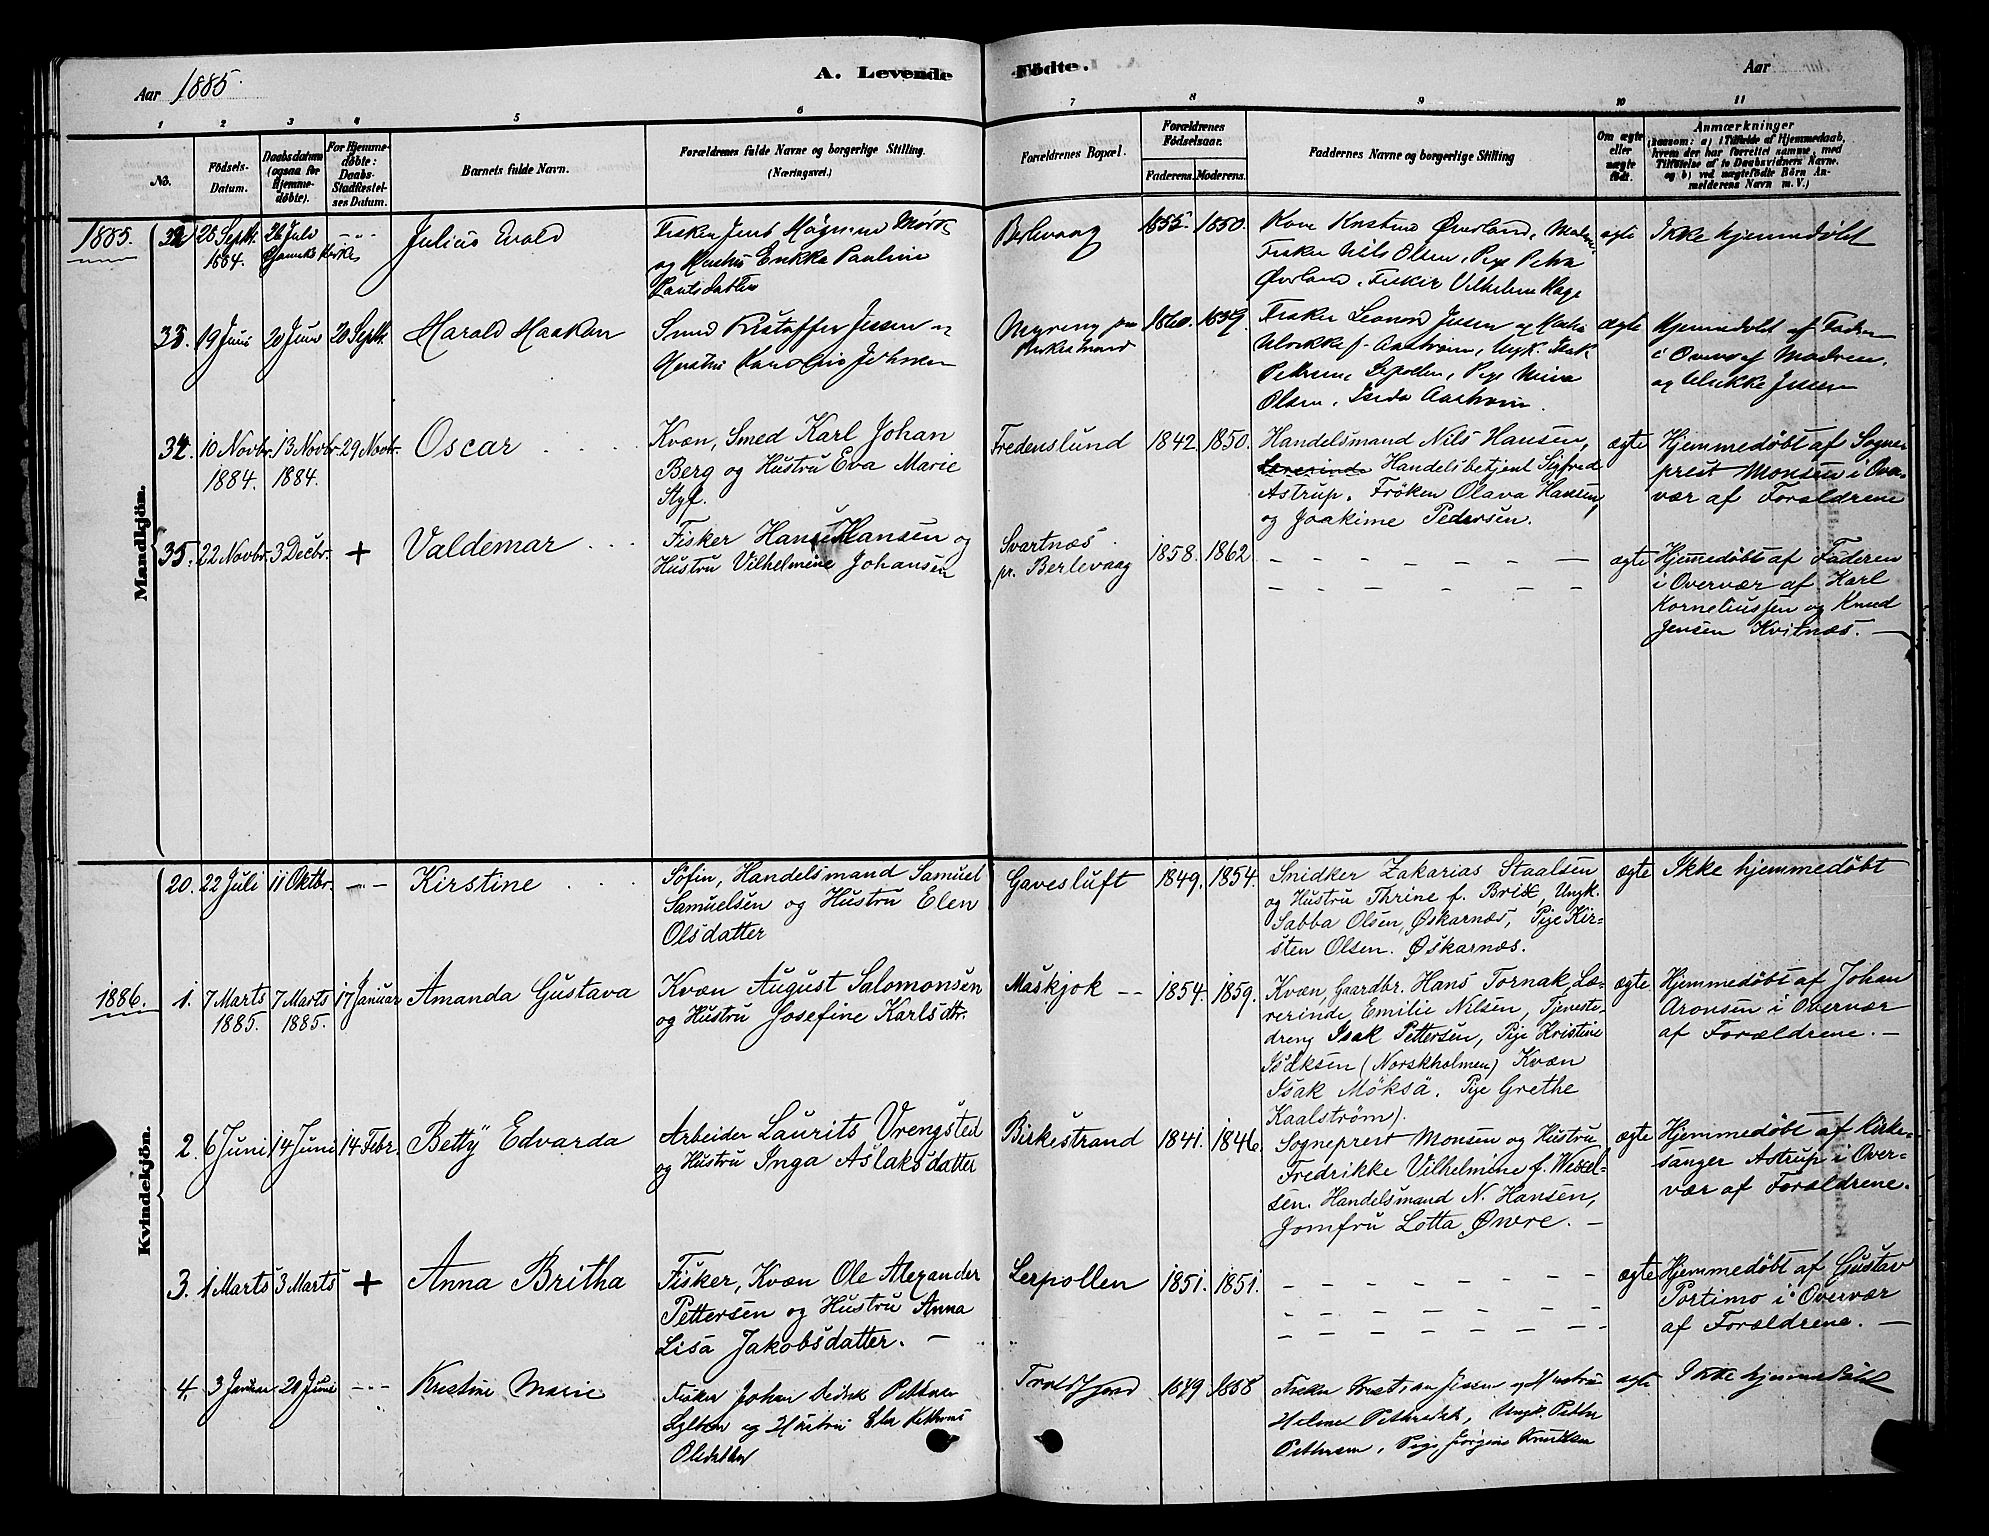 Aar 1885.
A. Levende Fødte.
Aar
1 2 3 4 5 6 7 8 9 10 11
No.
Fødsels-
Datum.
Daabsdatum
(ogsaa for
Hjemme-
døbte).
For Hjemme-
døbte:
Daabs-
Stadfæstel-
ses Datum.
Barnets fulde Navn.
Forældrenes fulde Navne og borgerlige Stilling.
(Næringsvei.)
Forældrenes Bopæl.
Forældrenes
Fødselsaar.
Faderens. Moderens.
Faddernes Navne og borgerlige Stilling
Om ægte
eller
uægte
født.
Anmærkninger
(saasom: a) i Tilfælde af Hjemmedaab,
hvem der har forrettet samme, med
Tilføielse af to Daabsvidners Navne.
og b) ved uægtefødte Börn An-
melderens Navn m. V.)
Mandkjön.
1885.
32 28 Septr.
1884.
26 Juli
Kirke
Julius Evald
Fisker Jens
og Hustru Erikka Pauline
Berlevaag
1855. 1850.
Kone Øverland,
Fisker Nils Olsen, Pige Petra
Øverland, Fisker Vilhelm Hage
ægte
Ikke hjemmedøbt
33. 19 Juni 20 Juni 20 Septr.
Harald Haakan
Smed Kristoffer Jessen og
Hustru Karoline Johnsen
1860. 1859.
Fisker Leonord Jessen og Hustru
Ulrikke f. Aastrøm, Ungk. Isak
Pettersen, Lerpollen, Pige
Olsen, Aastrøm.
ægte
Hjemmedøbt af Faderen
i Overv. af Moderen
og Ulrikke Jessen
34. 10 Novbr.
1884.
13 Novbr.
1884.
29 Novbr.
Oscar
Kvæn, Smed Karl Johan
Berg og Hustru Eva Marie
Styf.
Fredenslund
1842. 1850.
Handelsmand Nils Hansen,
Lærerinde Handelsbetjent Sigfred
Astrup. Frøken Olava Hansen,
og Joakime Pedersen.
ægte
Hjemmedøbt af Sogne-
prest Monsen i Over-
vær af Forældrene
35. 22 Novbr. 3 Decbr. +
Valdemar
Fisker Hans Hansen og
Hustru Vilhelmine Johansen
Svartnæs
pr. Berlevaag
1858. 1862
– – – – – – –
– – – – – – –
ægte
Hjemmedøbt af Faderen
i Overvær af Karl
Korneliussen og Knud
Jensen Kvitnæs. –
Kvindekjön.
20. 22 Juli 11 Oktbr. – –
Kirstine
Søfin, Handelsmand Samuel
Samuelsen og Hustru Elen
Olsdatter
Gavesluft
1849. 1854.
Snidker Zakarias Staalsen
og Hustru Thrine f. Brix, Ungk.
Sabba Olsen, Øskarnæs, Pige Kir-
sten Olsen. Øskarnæs.
ægte
Ikke hjemmedøbt
1886.
1. 7 Marts
1885.
7 Marts
1885.
17 Januar
Amanda Gustava
Kvæn August Salomonsen
og Hustru Josefine Karlsdtr.
Maskjok – –
1854. 1859.
Kvæn, Gaardbr. Hans Tornak, Læ-
rerinde, Emilie Nilsen, Tjeneste-
dreng Isak Pettersen, Pige Kristine
Isaksen (Norskholmen) Kvæn
Isak Möksä. Pige Grethe
Kaalstrøm).
ægte
Hjemmedøbt af Johan
Aronsen i Overvær
af Forældrene. –
2. 6 Juni 14 Juni 14 Febr.
Betty Edvarda
Arbeider Laurits Vrengsted
og Hustru Inga Aslaksdatter
Birkestrand
1841. 1846.
Sogneprest Monsen og Hustru
Fredrikke Vilhelmine f. Wessel-
sen. Handelsmand N. Hansen,
Jomfru Lotta Øwre. –
ægte
Hjemmedøbt af Kirke-
sanger Astrup i Over-
vær af Forældrene.
3. 1 Marts 3 Marts +
Anna Britha
Fisker, Kvæn Ole Alexander
Pettersen og Hustru Anna
Lisa Jakobsdatter. –
Lerpollen
1851. 1851.
– – – – – – –
– – – – – – –
ægte
Hjemmedøbt af Gustav
Portimo i Overvær
af Forældrene. –
4. 3 Januar 20 Juni – – –
Kristine Marie
Fisker Johan Didrik
og Hustru
Olsdatter
Troldfjord
1849 1858
Fisker Kristian Jessen og Hustru
Ungk. Petter
Pettersen, Pige Knudsen
ægte
Ikke hjemmedøbt